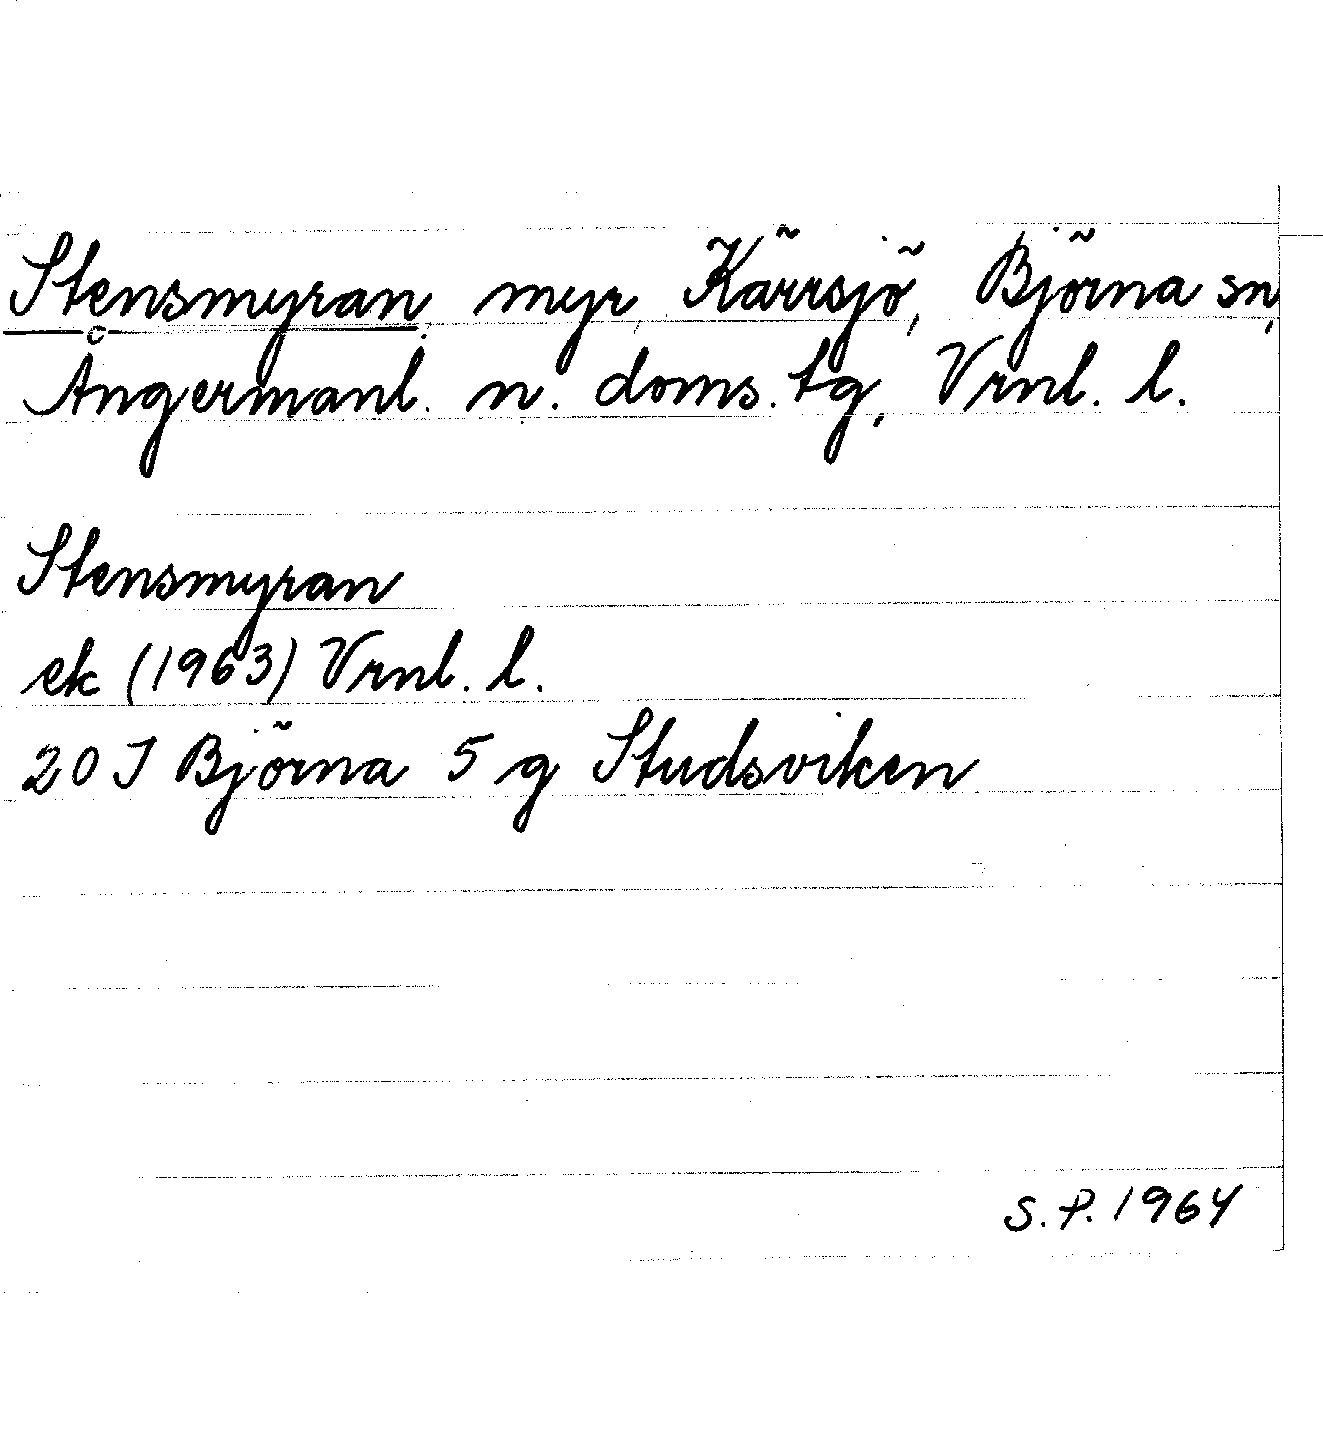 Stensmyran, myr, Kärrsjö, Björna sn,
Ångermanl. n. doms. tg, Vrnl. l.
Stensmyran
ek (1963) Vrnl. l.
20 J Björna 5 g Studsviken
S.P. 1964